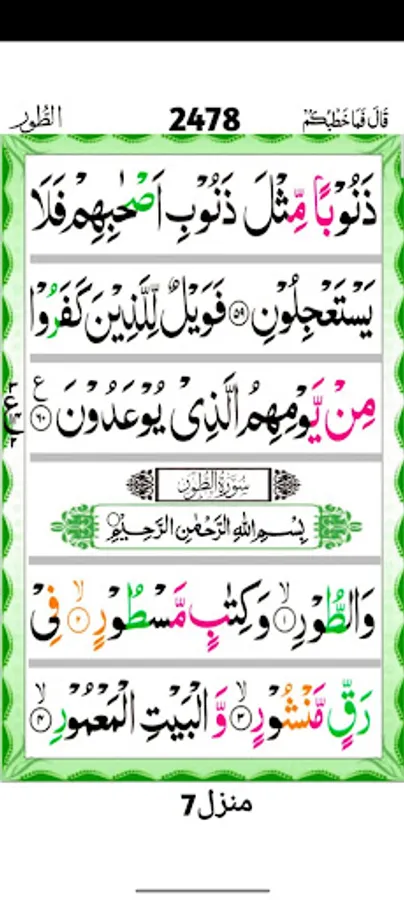 قَالَ فَمَا خَطْبُكُمْ 2478 الطُّوْر
ذَنُوْبًا مِّثْلَ ذَنُوْبِ اَصْحٰبِهِمْ فَلَا
يَسْتَعْجِلُوْنِ ۝۵۹ فَوَيْلٌ لِّلَّذِيْنَ كَفَرُوْا
مِنْ يَّوْمِهِمُ الَّذِیْ يُوْعَدُوْنَ ۝۶۰ ع
سُوْرَةُ الطُّوْر
بِسْمِ اللّٰهِ الرَّحْمٰنِ الرَّحِيْمِ
وَالطُّوْرِ ۝۱ۙ وَكِتٰبٍ مَّسْطُوْرٍ ۝۲ۙ فِیْ
رَقٍّ مَّنْشُوْرٍ ۝۳ۙ وَّ الْبَيْتِ الْمَعْمُوْرِ ۝۴ۙ
منزل7